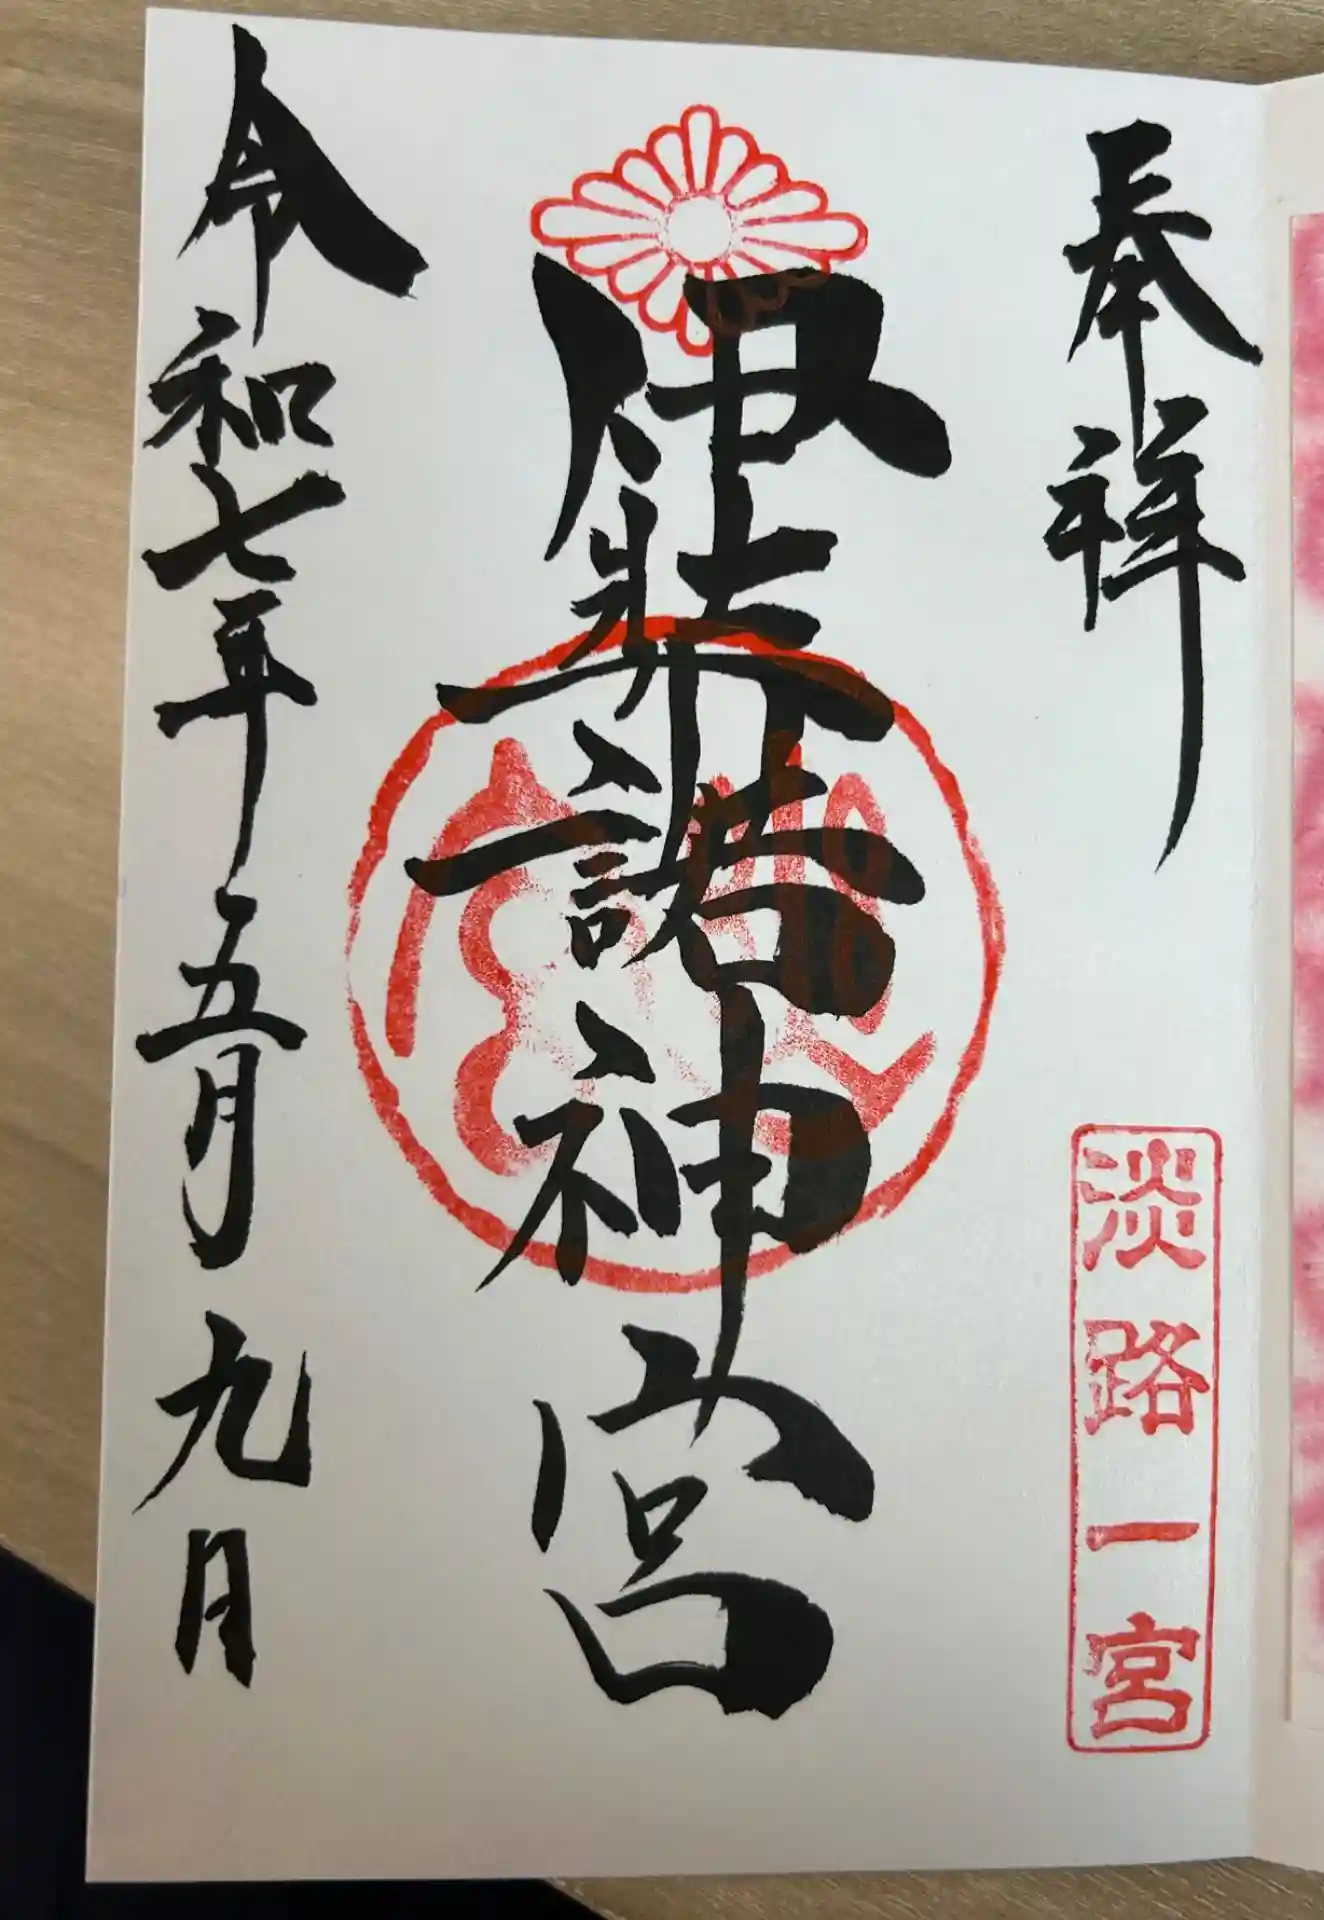 奉拝
淡路一宮
伊弉諾神宮
令和七年五月九日